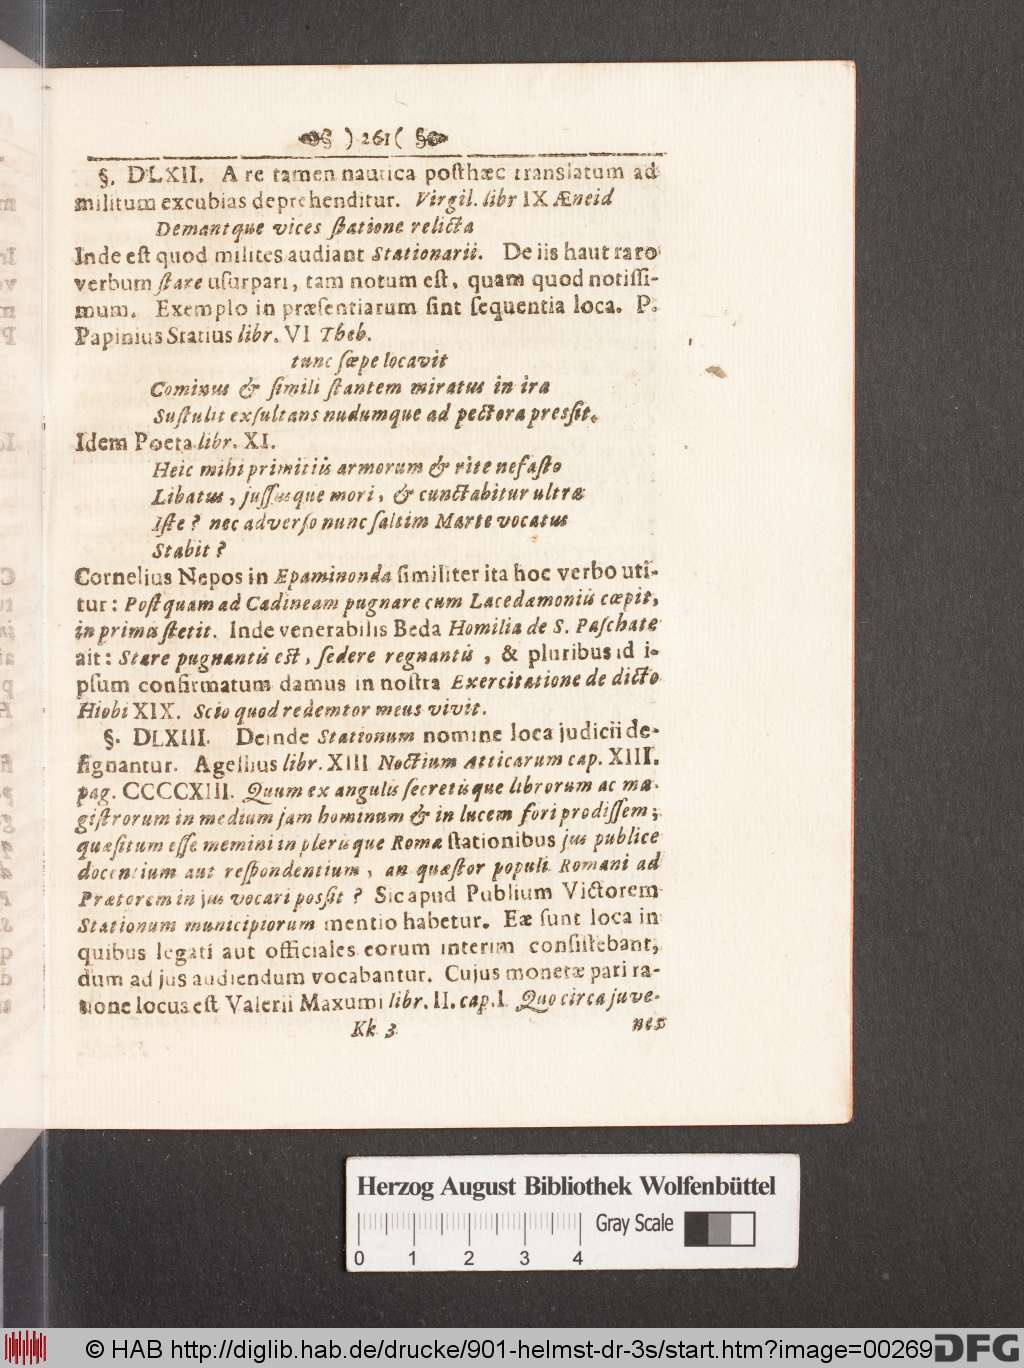 § ) 261 ( §
§. DLXII. A re tamen nautica posthæc translatum ad
militum excubias deprehenditur. Virgil. libr IX Æneid
Demantque vices statione relicta
Inde est quod milites audiant Stationarii. De iis haut raro
verbum stare usurpari, tam notum est, quam quod notissi-
mum. Exemplo in præsentiarum sint sequentia loca. P.
Papinius Statius libr. VI Theb.
tunc sæpe locavit
Cominus & simili stantem miratus in ira
Sustulit exsultans nudumque ad pectora pressit.
Idem Poeta libr. XI.
Heic mihi primitiis armorum & rite nefasto
Libatus, jussusque mori, & cunctabitur ultræ
Iste? nec adverso nunc saltim Marte vocatus
Stabit?
Cornelius Nepos in Epaminonda similiter ita hoc verbo uti-
tur: Postquam ad Cadineam pugnare cum Lacedæmoniis cœpit,
in primis stetit. Inde venerabilis Beda Homilia de S. Paschate
ait: Stare pugnantis est, sedere regnantis, & pluribus id i-
psum confirmatum damus in nostra Exercitatione de dicto
Hiobi XIX. Scio quod redemtor meus vivit.
§. DLXIII. Deinde Stationum nomine loca judicii de-
signantur. Agellius libr. XIII Noctium Atticarum cap. XIII.
pag. CCCCXIII. Quum ex angulis secretisque librorum ac ma-
gistrorum in medium jam hominum & in lucem fori prodissem;
quæsitum esse memini in plerisque Romæ stationibus jus publice
docentium aut respondentium, an quæstor populi Romani ad
Prætorem in jus vocari possit? Sic apud Publium Victorem
Stationum municipiorum mentio habetur. Eæ sunt loca in
quibus legati aut officiales eorum interim consistebant,
dum ad jus audiendum vocabantur. Cujus monetæ pari ra-
tione locus est Valerii Maxumi libr. II. cap. I. Quocirca juve-
Kk 3 nes
Herzog August Bibliothek Wolfenbüttel
Gray Scale
0 1 2 3 4
© HAB http://diglib.hab.de/drucke/901-helmst-dr-3s/start.htm?image=00269 DFG